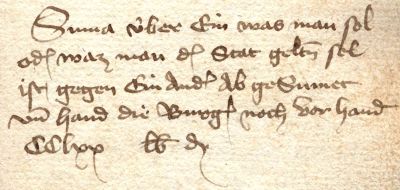 Suma über Ein was man sol
od' waz man d' Stat geltn sol
ist gegen Ein And' Ab geSumet
vn hand die Burg' noch vor hand
CClxx lb dn